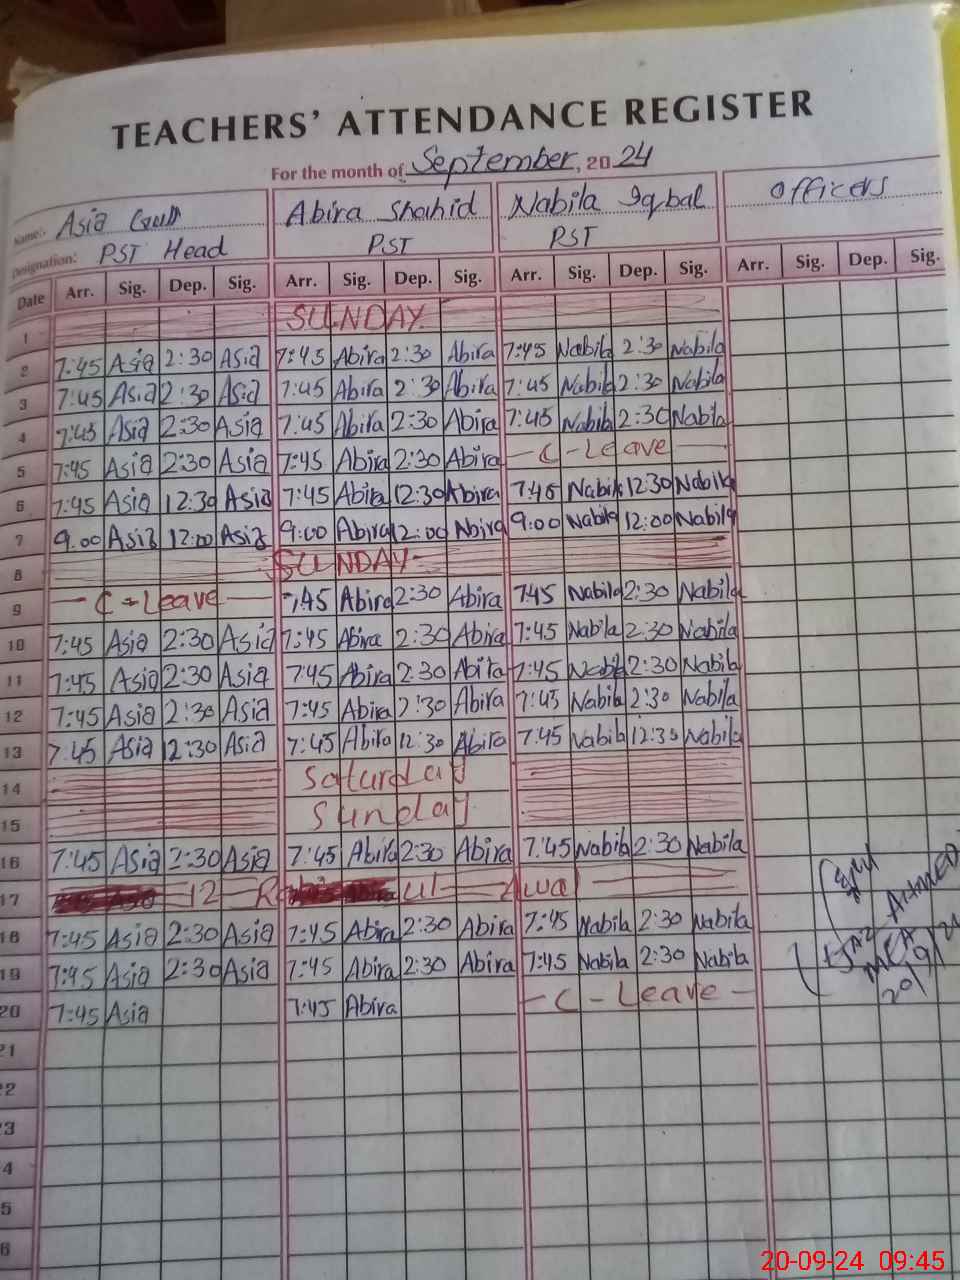 TEACHERS' ATTENDANCE REGISTER
For the month of September, 2024
Name:- Asia Gull Abira Shahid Nabila Iqbal Officers
Designation: PST Head PST PST
Date Arr. Sig. Dep. Sig. Arr. Sig. Dep. Sig. Arr. Sig. Dep. Sig. Arr. Sig. Dep. Sig.
1 SUNDAY
2 7:45 Asia 2:30 Asia 7:45 Abira 2:30 Abira 7:45 Nabila 2:30 Nabila
3 7:45 Asia 2:30 Asia 7:45 Abira 2:30 Abira 7:45 Nabila 2:30 Nabila
4 7:45 Asia 2:30 Asia 7:45 Abira 2:30 Abira 7:45 Nabila 2:30 Nabila
5 7:45 Asia 2:30 Asia 7:45 Abira 2:30 Abira - C - Leave
6 7:45 Asia 12:30 Asia 7:45 Abira 12:30 Abira 7:45 Nabila 12:30 Nabila
7 9:00 Asia 12:00 Asia 9:00 Abira 12:00 Abira 9:00 Nabila 12:00 Nabila
8 SUNDAY
9 - C - Leave - 7:45 Abira 2:30 Abira 7:45 Nabila 2:30 Nabila
10 7:45 Asia 2:30 Asia 7:45 Abira 2:30 Abira 7:45 Nabila 2:30 Nabila
11 7:45 Asia 2:30 Asia 7:45 Abira 2:30 Abira 7:45 Nabila 2:30 Nabila
12 7:45 Asia 2:30 Asia 7:45 Abira 2:30 Abira 7:45 Nabila 2:30 Nabila
13 7:45 Asia 12:30 Asia 7:45 Abira 12:30 Abira 7:45 Nabila 12:30 Nabila
14 Saturday
15 Sunday
16 7:45 Asia 2:30 Asia 7:45 Abira 2:30 Abira 7:45 Nabila 2:30 Nabila
17 12 ul Awal
18 7:45 Asia 2:30 Asia 7:45 Abira 2:30 Abira 7:45 Nabila 2:30 Nabila
19 7:45 Asia 2:30 Asia 7:45 Abira 2:30 Abira 7:45 Nabila 2:30 Nabila
20 7:45 Asia 7:45 Abira - C - Leave -
EJAZ AHMED
MEA
20/9/24
21
22
23
4
5
6
20-09-24 09:45